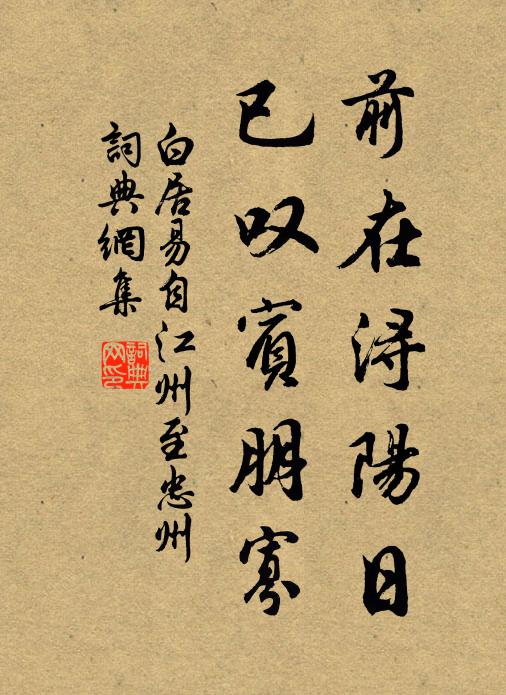 前在浔陽日
已叹賓朋寡
白居易自江州至忠州
詞典網集
詞典网印